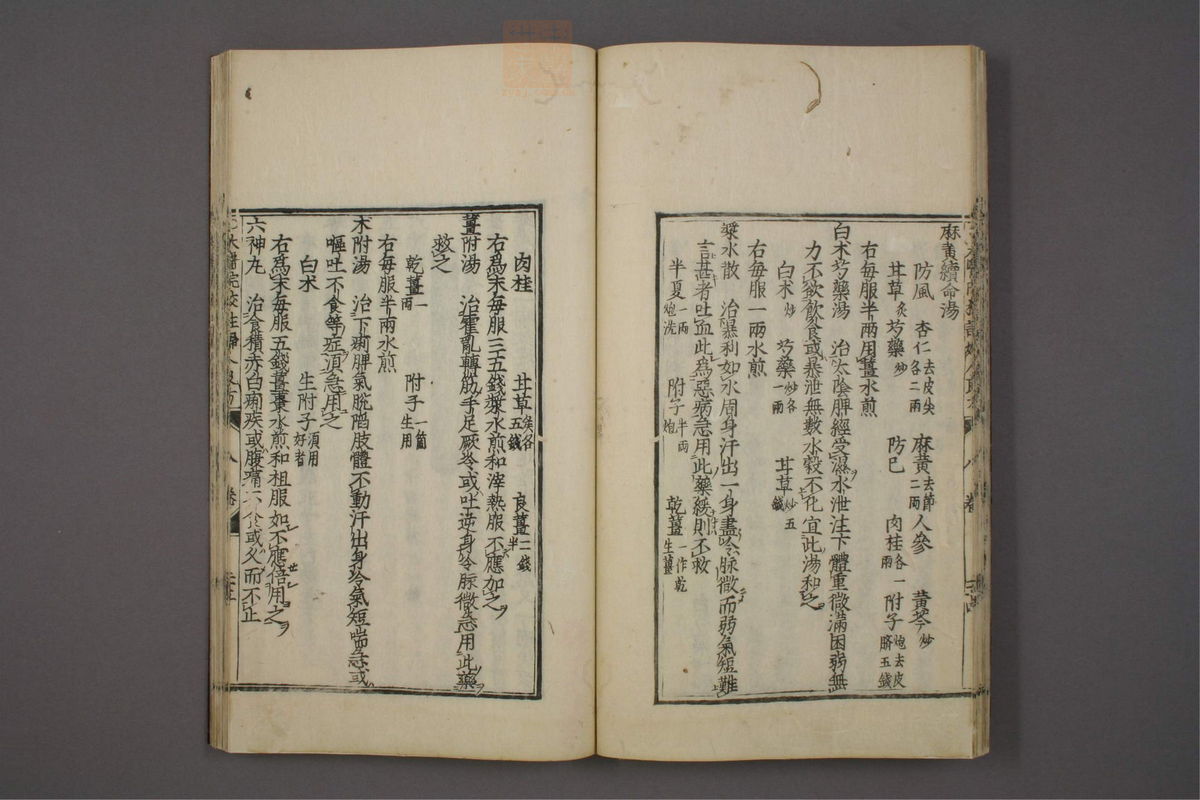 麻黄續命湯
防風 杏仁去皮尖各二兩 麻黄去節二兩 人參 黄芩炒
甘草炙 芍藥炒 防巳 肉桂各一兩 附子炮去皮臍五錢
右每服半兩用薑水煎
白术芍藥湯 治太陰脾經受濕水泄注下體重微滿困弱無
力不欲飲食或暴泄無數水穀不化宜此湯和之
白术炒 芍藥炒各一兩 甘草炒五錢
右每服一兩水煎
漿水散 治暴利如水周身汗出一身盡冷脉微而弱氣短難
言甚者吐血此為惡病急用此藥緩則不救
半夏一兩炮洗 附子半兩炮 乾薑一作乾生薑
肉桂 甘草炙各五錢 良薑二錢半
右爲末每服三五錢漿水煎和滓熱服不應加之
薑附湯 治霍亂轉筋手足厥冷或吐逆身冷脉微急用此藥
救之
乾薑一兩 附子一箇生用
右每服半兩水煎
术附湯 治下痢脾氣脱陷肢體不動汗出身冷氣短喘急或
嘔吐不食等症須急用之
白术 生附子須用好者
右爲末每服五錢薑棗水煎和柤服如不應倍用之
六神丸 治食積赤白痢疾或腹痛不食或久而不止
卷八